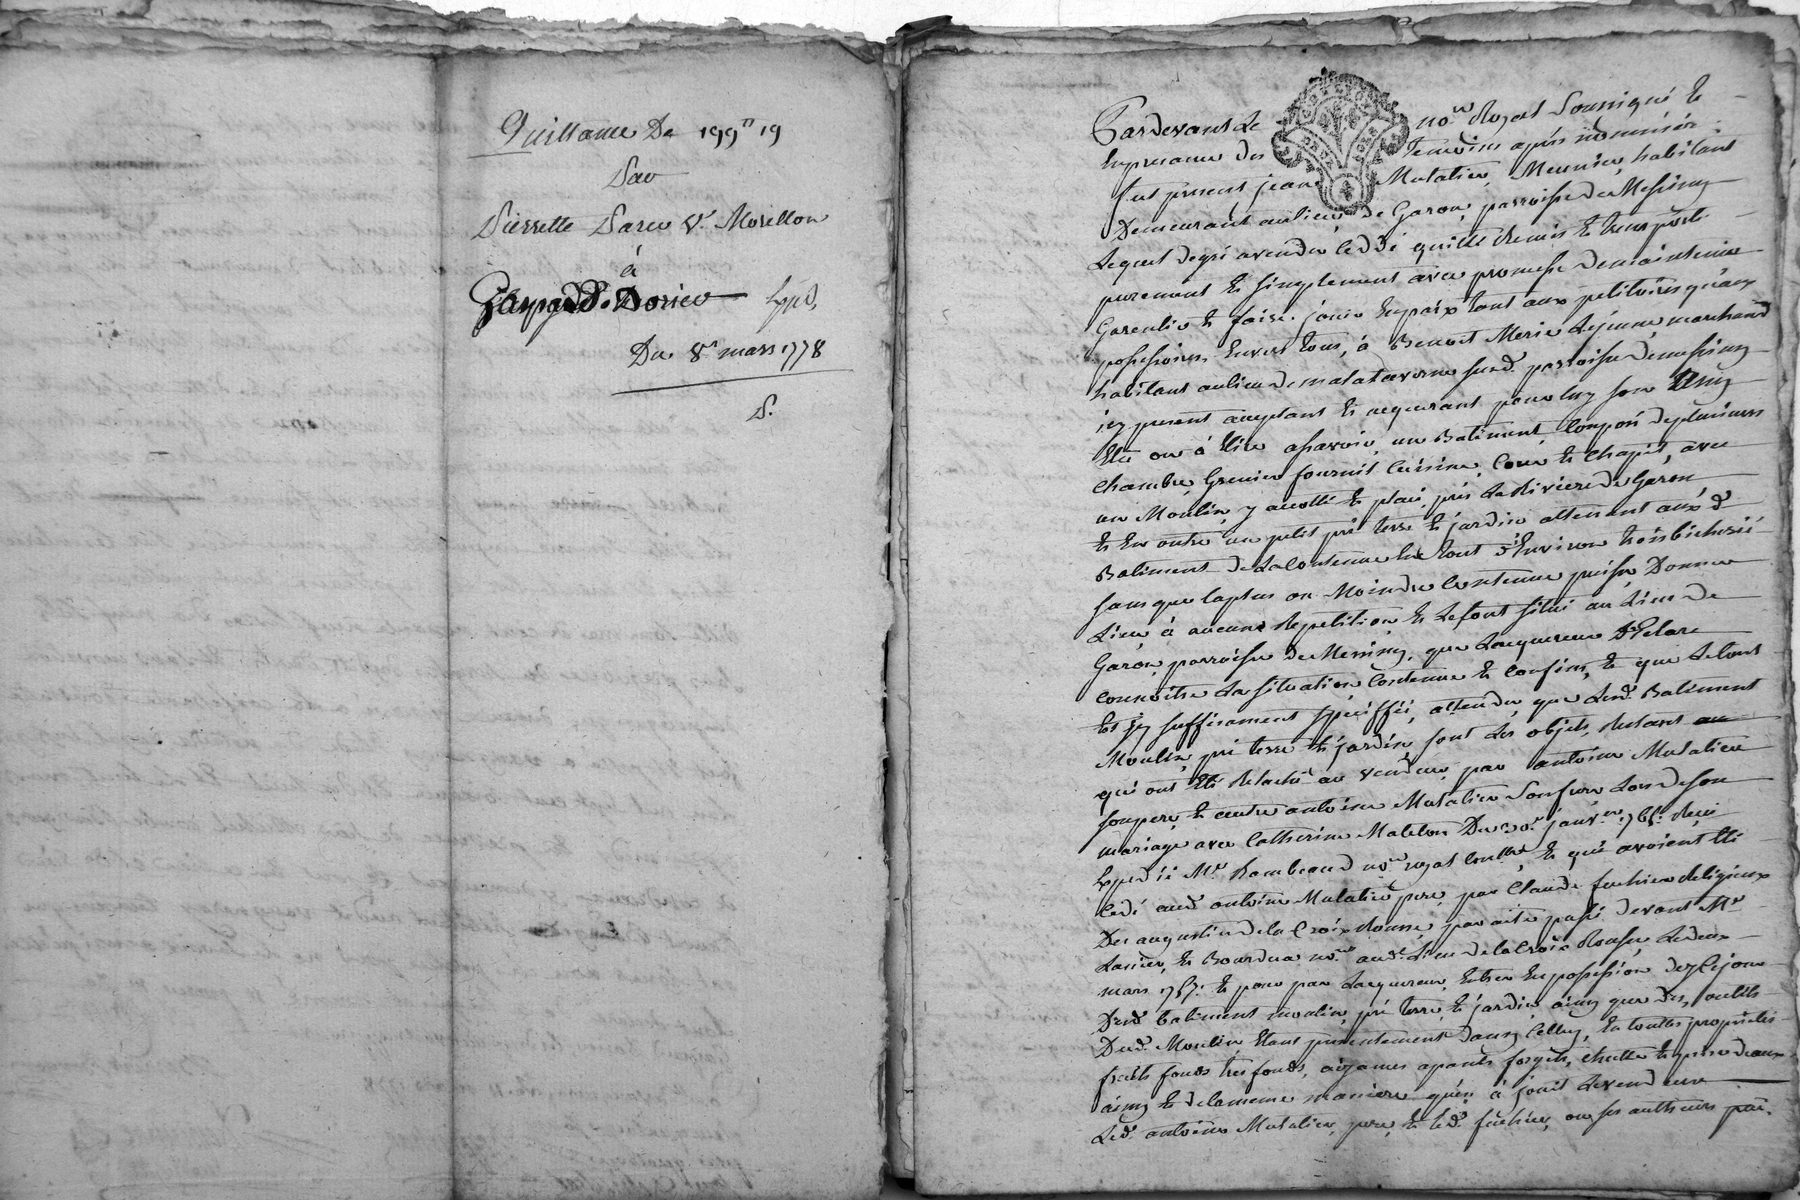 Quittance De 199# 19
Par
Pierrette Dareu Vᵉ Morellon
à
Gaspard Dorieu Expéd.
Du 8ᵉ mars 1778
S.
Pardevant Le noʳᵉ Royal Soussigné Et
En presence des Temoins après nommés
fut present jean Mutatier Meunier, habitant
Demeurant au lieu de Garon, parroisse de Messimy
Lequel degré a vendu ceddé quitté remis Et transporté
purement Et simplement avec promesse de maintenir
Garentir Et faire jouir En paix tant aux petitoires qu'aux
possessoires Envers tous, à Benoit Marie Lejeune, marchand
habitant au lieu de malataverne sus d. parroisse de messimy
icy present acceptant Et acquerant pour luy son Amy
Elu ou à Elire assavoir, un Batiment Composé de plusieurs
Chambre, Grenier fournil Cuisine, Cour Et Chapit, avec
un Moulin y accollé Et placé près La Riviere de Garon
Et En outre un petit pré terre Et jardin attenant aux d.
Batiment De La Contenue En tout d'Environ trois bicherées
sans que la plus ou Moindre Contenue puisse Donner
Lieu à aucune Repetition Et Le tout situé au Lieu de
Garon, parroisse de Messimy, que L'acquereur Declare
connoitre La situation Contenue Et Confins, Et que Le tout
Est icy suffisament specifié, attendu que Lesd. Batiment
Moulin, pré terre Et jardin, sont Les objets
qui ont Eté Relaché au vendeur par antoine Mutatier
son pere, Et autre antoine Mutatier Son frere Lors de son
mariage avec Catherine Du 20 janvᵉʳ 1765. Reçu
Expedié Mᵉ Rambaud noʳᵉ royal Et qui avoient Eté
Cedé aud. antoine Mutatier pere, par Claude Religieux
Des augustins de la Croix Rousse, par acte passé devant Mᵉ
Et Bourdin noʳᵉˢ aud. Lieu de la Croix Rousse, Le deux
mars 1757. Et pour par L'acquereur, Entrer En possession dez Cejour
Desd. batiment moulin, pré terre Et jardin ainsy que des outils
Dud. Moulin Etant presentement dans Celluy, En toutes proprietés
fruits fonds tres fonds, aisances apparts forgets, chutte Et prise deaux
ainsy Et de la meme maniere qu'en à jouit Le vendeur
Led. antoine Mutatier, pere, Et led. ou ses autheurs par,